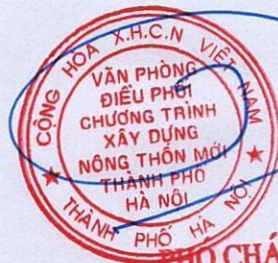 CỘNG HÒA X.H.C.N VIỆT NAM
VĂN PHÒNG
ĐIỀU PHỐI
CHƯƠNG TRÌNH
XÂY DỰNG
NÔNG THÔN MỚI
THÀNH PHỐ
HÀ NỘI
THÀNH PHỐ HÀ NỘI
PHÓ CHÁ